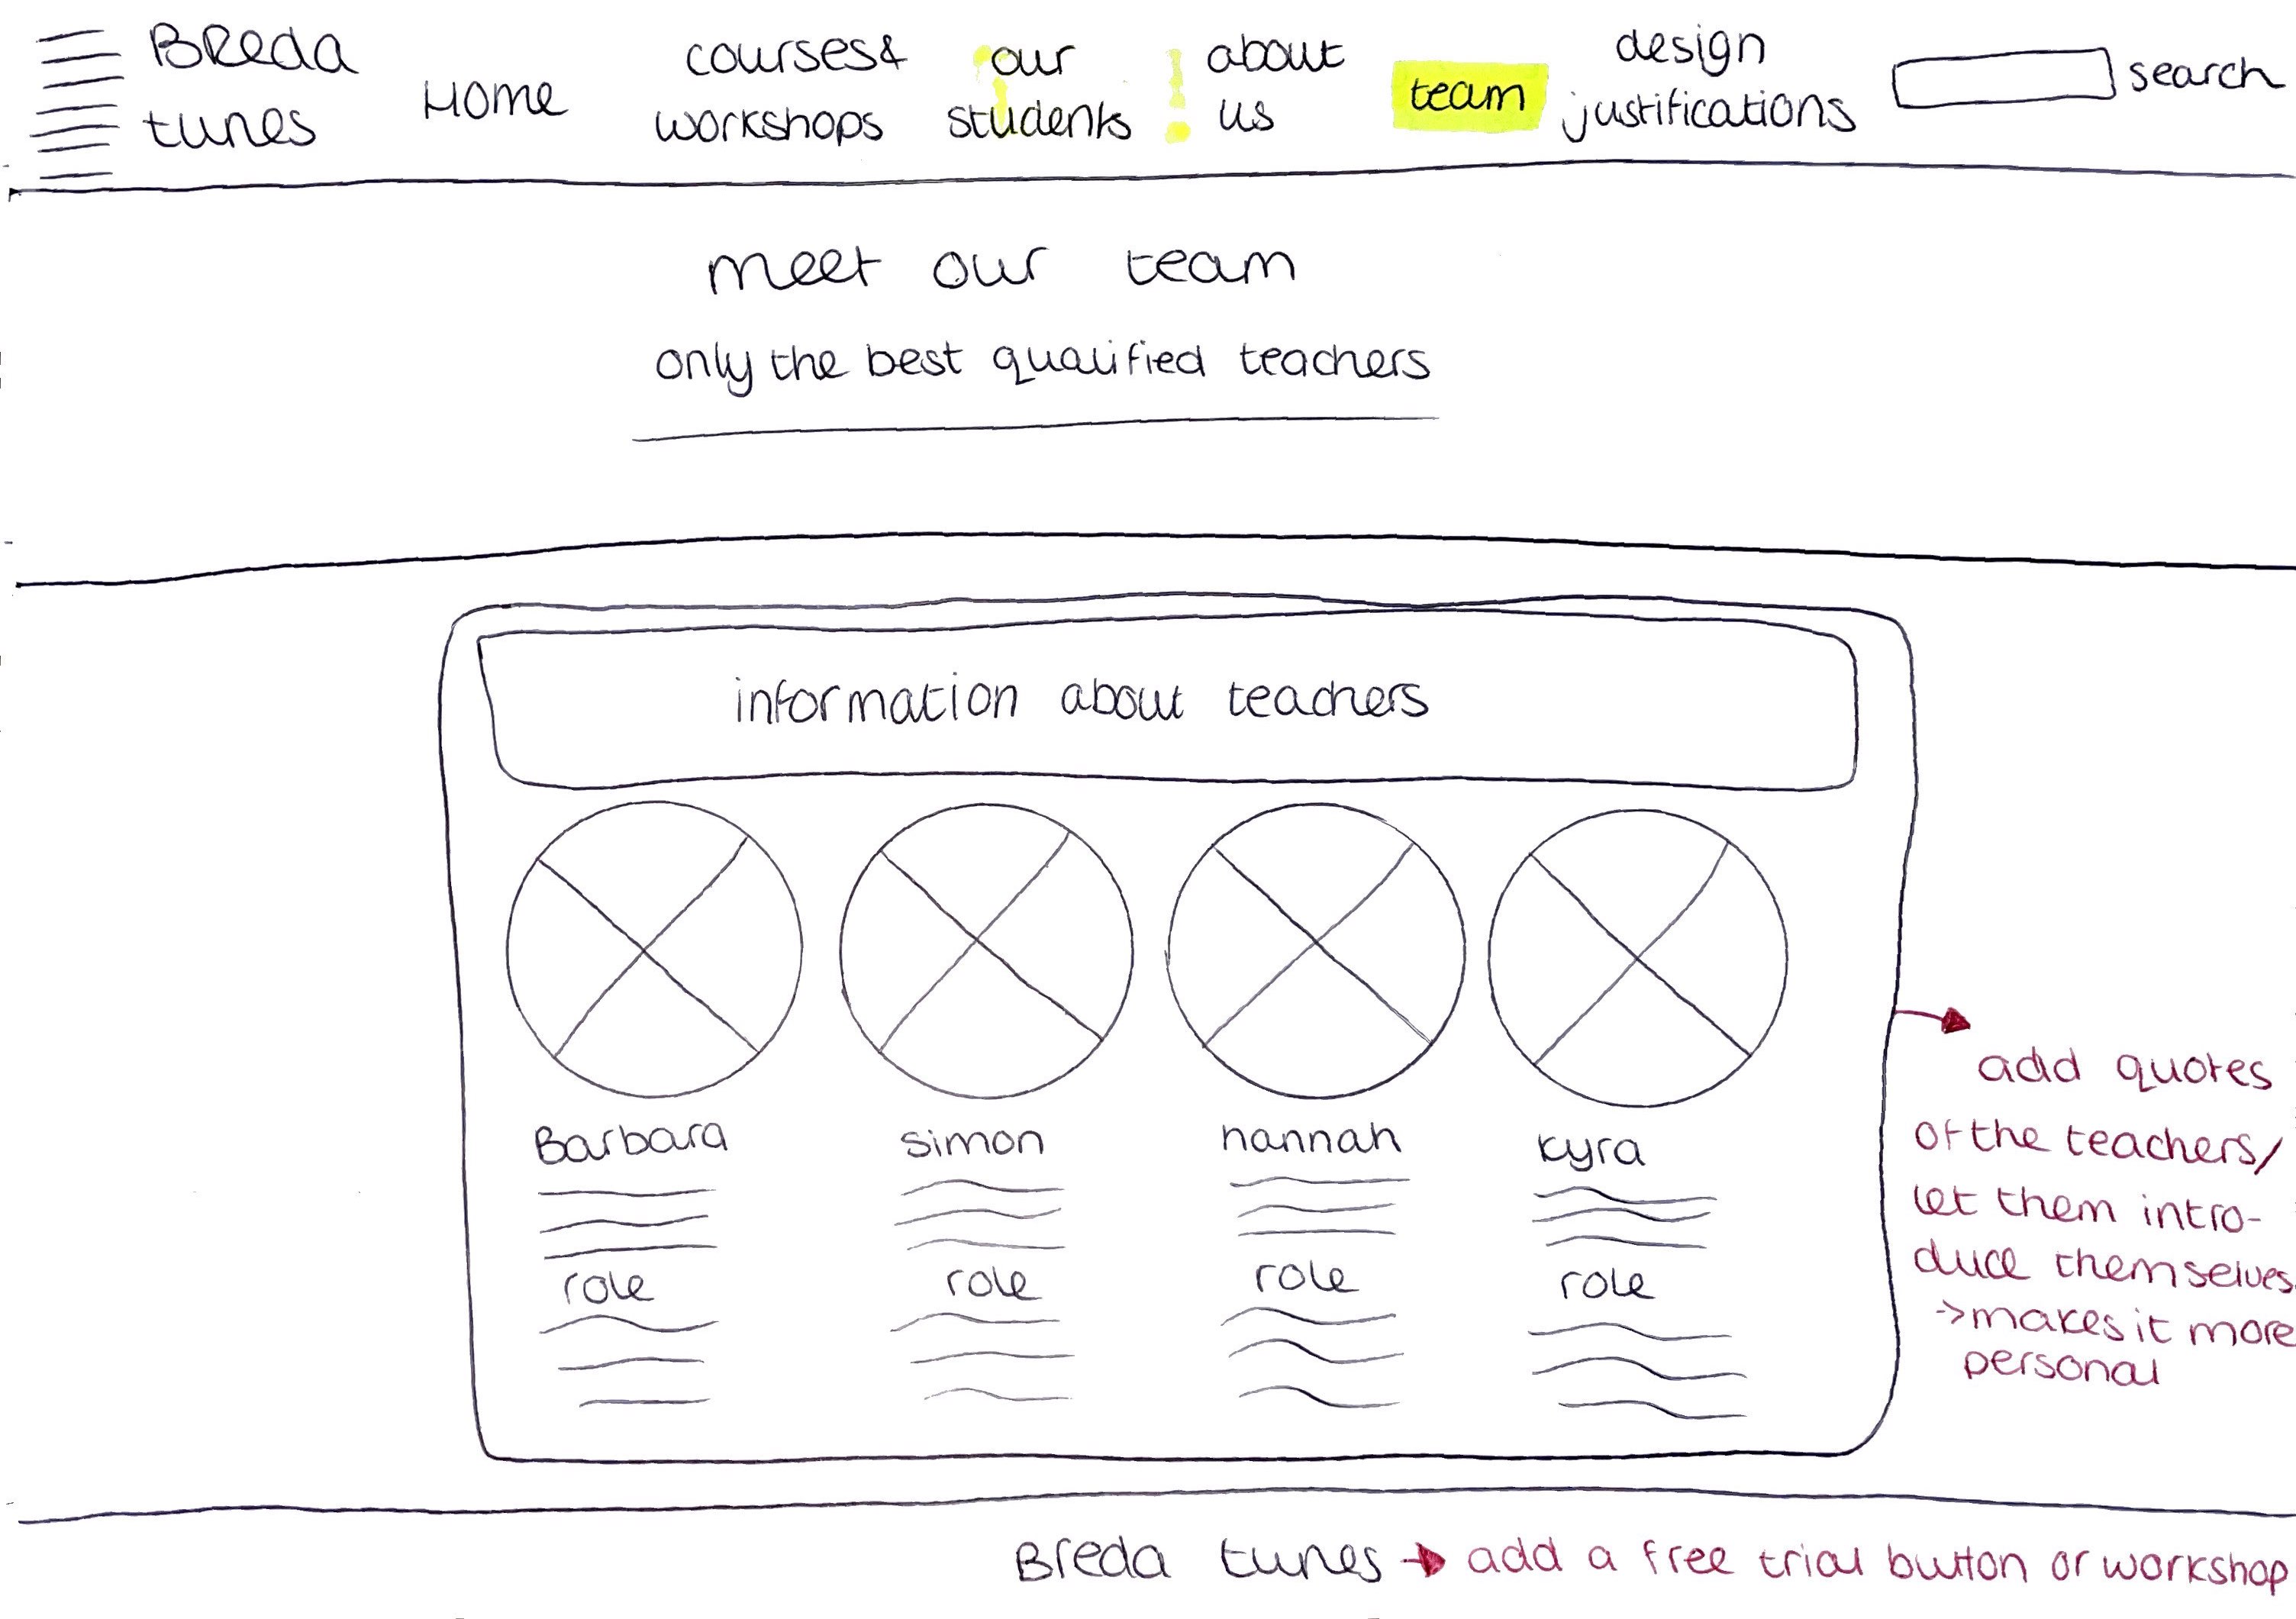 Breda
tunes
Home
courses&
workshops
our
students
about
us
team
design
justifications
search
meet our team
only the best qualified teachers
information about teachers
Barbara
simon
hannah
kyra
role
role
role
role
add quotes
of the teachers/
let them intro-
duce themselves
->makes it more
personal
Breda tunes → add a free trial button or workshop